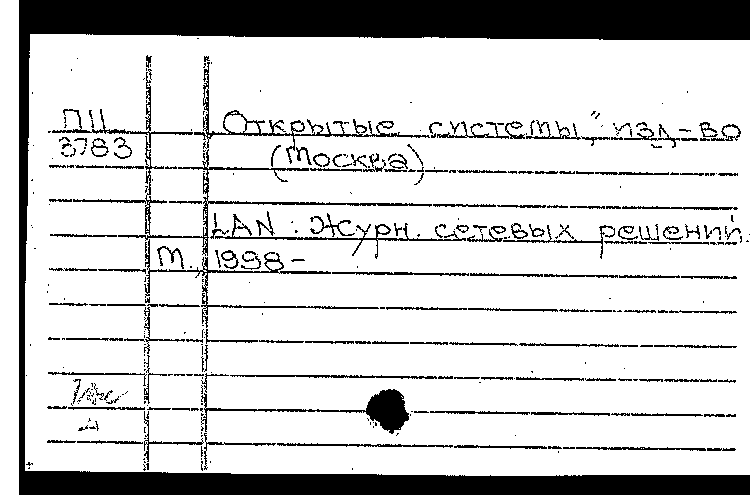 П11 Открытые системы," изд-во
3783 (Москва)
LAN : Журн. сетевых решений.
М., 1998-